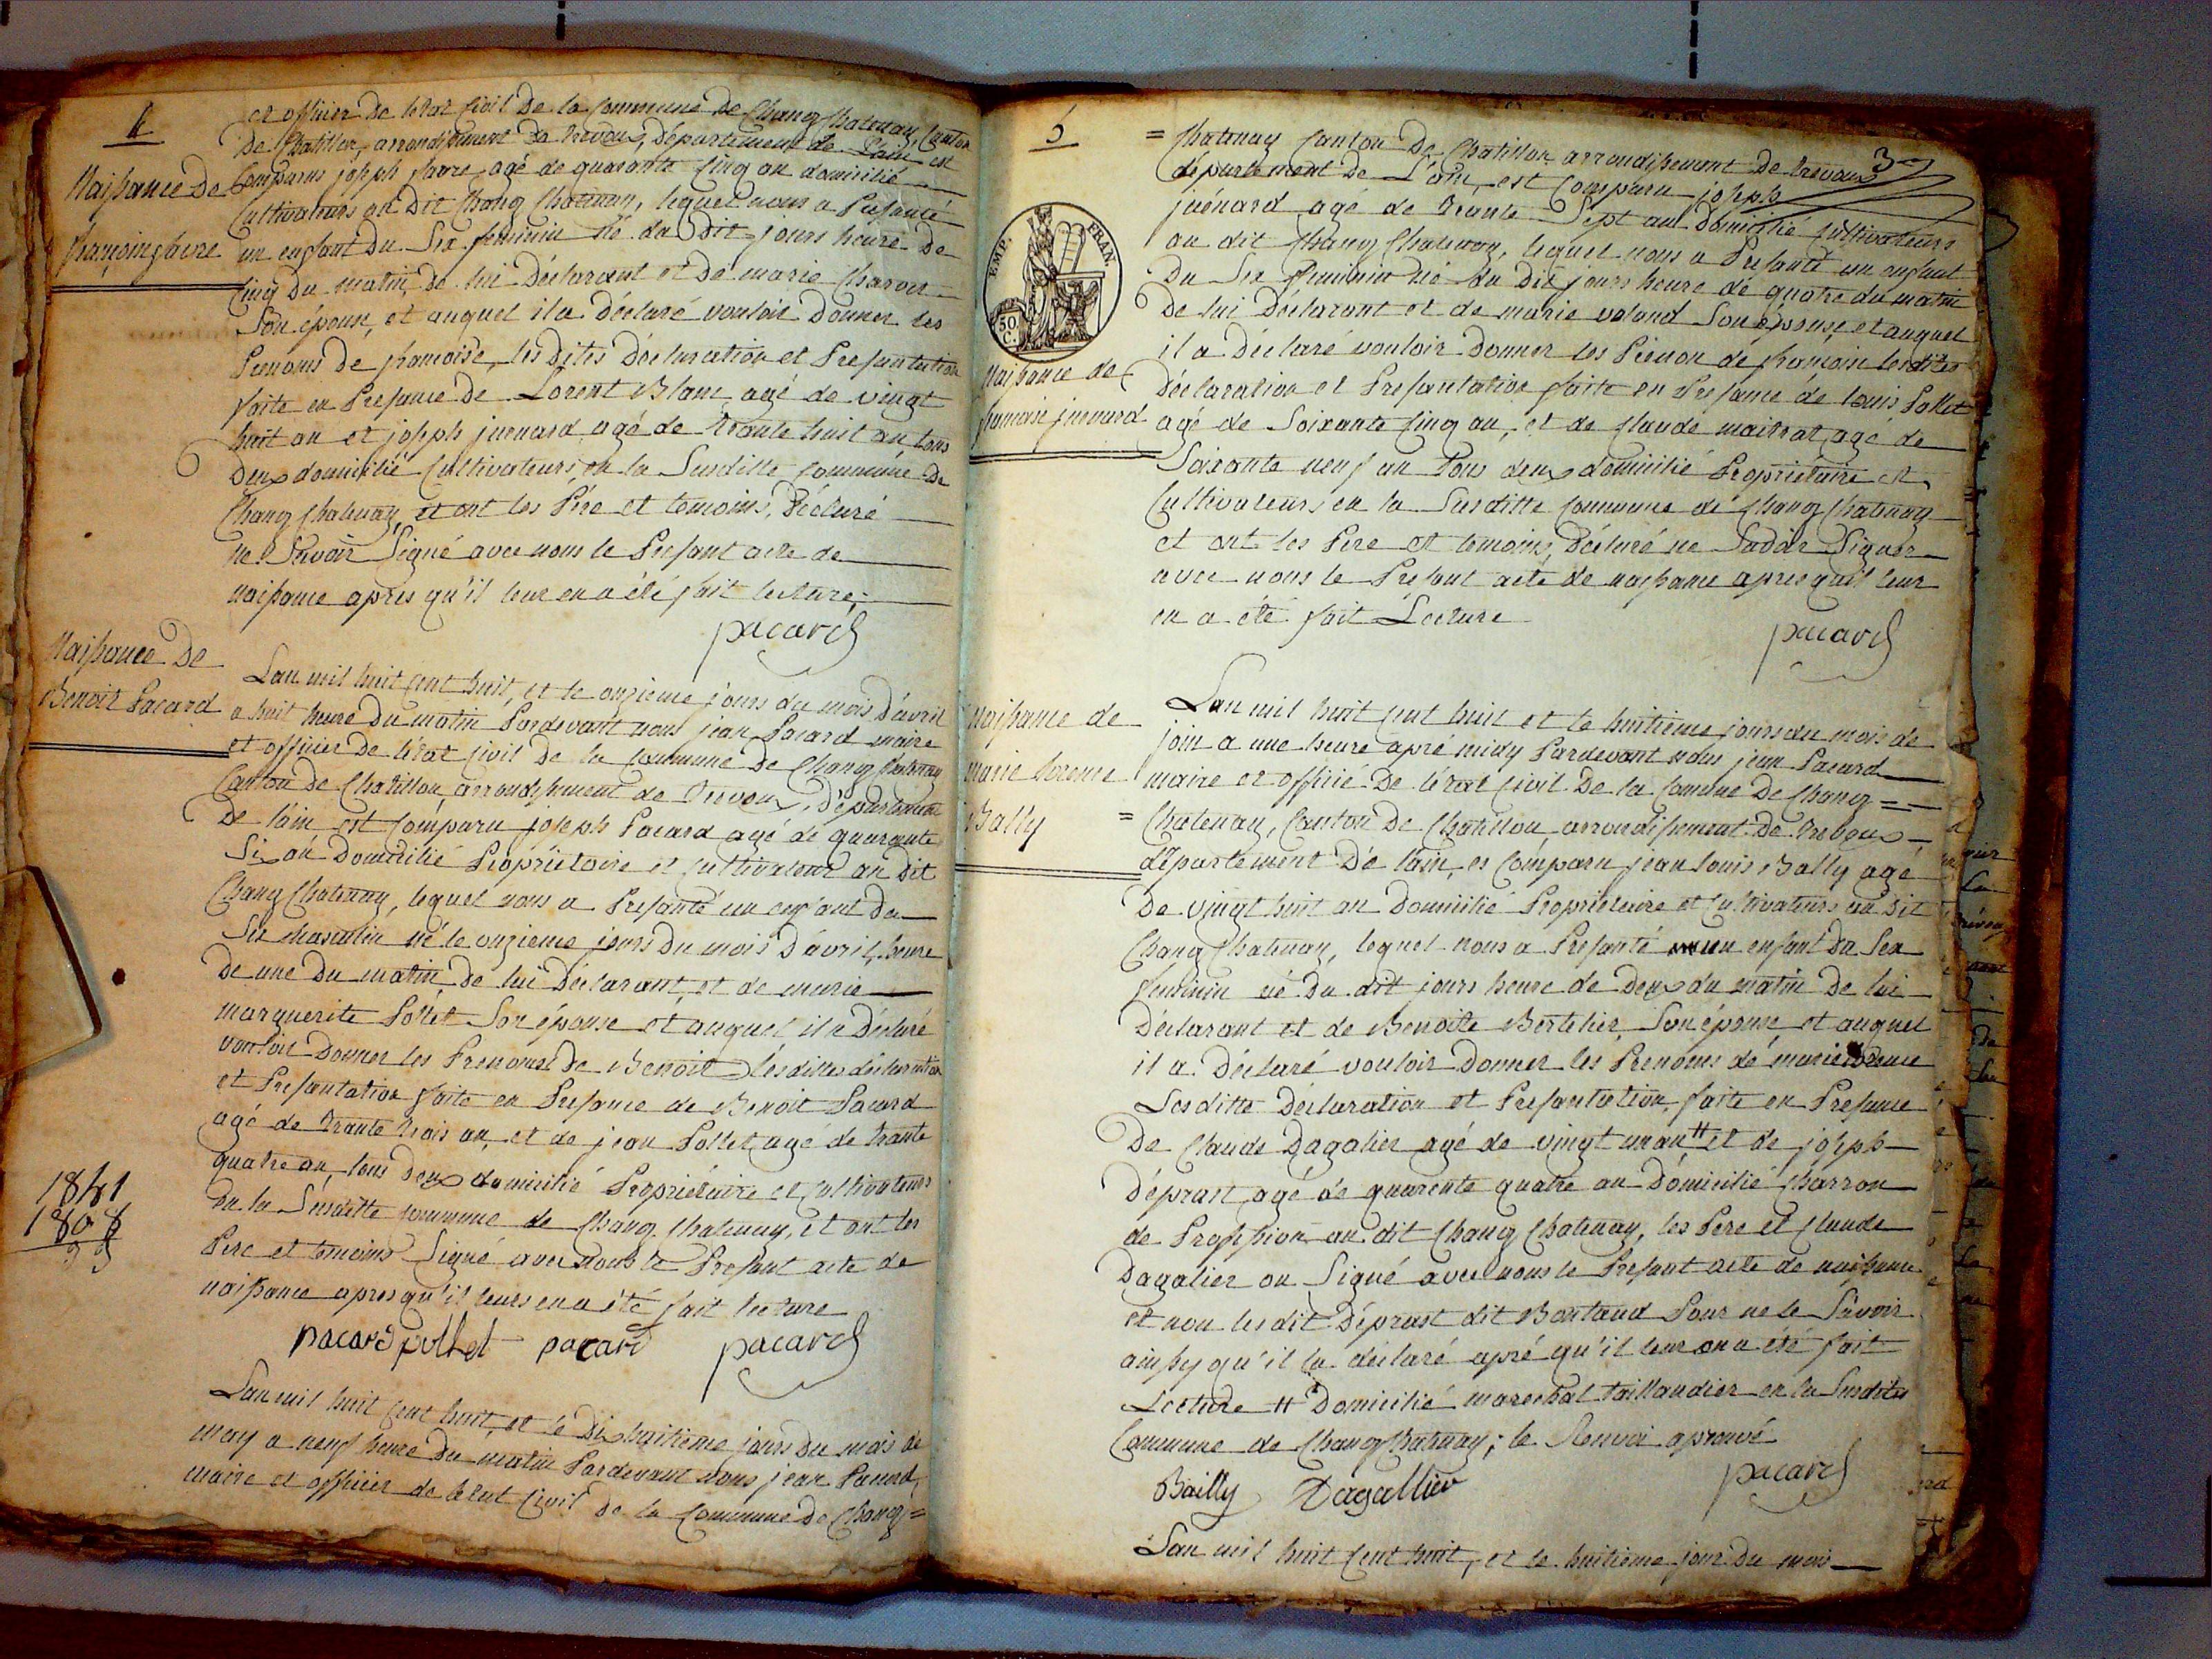 4
et officier de letat Civil De la Commune de Chang Chatenay Canton
De Chatillon, arrondissement De trevoux, Département de Lain est
Naissance De
Comparus joseph favre agé de quarante Cinq an domicilié
Cultivateurs au Dit Chang Chatenay, lequel nous a Présanté
françoise favre
un enfant Du Sex feminin né du Dit jours heure De
Cinq Du matin, De lui Déclarant et De marie
Son épouse, et auquel il a Déclaré vouloir Donner les
Prenoms de francoise, les Dites Déclaration et Presantation
faite en Presance de Lorent Blanc agé de vingt
huit an et joseph juénard agé de trante huit an tous
Deux domicilié Cultivateurs en la Susditte Commune De
Chang Chatenay, et ont les Pére et temoins, Déclaré
ne Savoir Signé avec nous le Presant acte de
naissance apres qu'il leur en a été fait lecture;
pacard
Naissance De
Benoit Pacard
Lan mil huit Cent huit, et le onzieme jours du mois D'avril
a huit heure Du matin Pardevant nous jean Pacard maire
et officier De l'état Civil De la Commune De Chang Chatenay
Canton De Chatillon arrondissement de Trevoux, Département
De lain, est Comparu joseph Pacard agé de quarante
Six an Domicilié Propriétaire et Cultivateur au Dit
Chang Chatenay, lequel nous a Presanté un enfant Du
Sex masculin né le onzieme jours Du mois D'avril, heure
De une Du matin, De lui Déclarant, et de marie
marguerite Pollet Son épouse et auquel il a Déclaré
vouloir Donner les Prenoms De Benoit les dittes déclaration
et Presantation faite en Presance de Benoit Pacard
agé de trante trois an, et de jean Pollet agé de trante
quatre an, tous Deux domicilié Propriétaire et Cultivateurs
en la Susditte Commune de Chang Chatenay, et ont les
Pere et temoins Signé avec nous le Presant acte de
naissance apres qu'il leurs en a été fait lecture
pacard pollet pacard pacard
1841
1808
33
Lan mil huit Cent huit, et le Dix huitieme jours Du mois de
may a neuf heure Du matin Pardevant nous jean Pacard,
maire et officier de letat Civil De la Commune De Chang=
5
3
= Chatenay Canton De Chatillon arrondissement de trevoux
département De L'ain, est Comparu joseph
juénard agé de trante Sept an Domicilié Cultivateurs
au dit Chang Chatenay, lequel nous a Presanté un enfant
Du Sex feminin né Du Dit jours heure de quatre du matin
De lui Déclarant et de marie voland Son épouse, et auquel
EMP. FRAN.
50 C.
il a Déclaré vouloir Donner les Prenon de francoise lesdites
Naissance de
francoise juenard
Déclaration et Presantation faite en Presance de louis Pollet
agé de Soixante Cinq an, et de Claude maitrat agé de
Soixante neuf an tous deux domicilié Propriétaire et
Cultivateurs en la Susditte Commune de Chang Chatenay
et ont les Pere et temoins, Déclaré ne Savoir Signer
avec nous le Presant acte de naissance apres quil leur
en a été fait Lecture
pacard
Naissance de
marie lorence
Bally
Lan mil huit Cent huit et le huitieme jours du mois de
join a une heure apré midy Pardevant nous jean Pacard
maire et officié De l'état Civil De la Comune De Chang =
= Chatenay, Canton De Chatillon arrondissement De Trevoux
département De lain, es Comparu jean louis Bally agé
De vingt huit an Domicilié Propriétaire et Cultivateurs au Dit
Chang Chatenay, lequel nous a Presanté un enfant Du Sex
feminin né Du dit jours heure de Deux du matin De lui
Déclarant et de Benoite Bertelier Son épouse, et auquel
il a Déclaré vouloir Donner les Prenoms de marie lorence
Lesditte Déclaration et Presantation, faite en Presance
De Claude Dagalier agé de vingt un an # et de joseph
Déprast, agé de quarente quatre an Domicilié Charron
de Profession au dit Chang Chatenay, les Pere et Claude
Dagalier on Signé avec nous le Presant acte de naissance
et non les dit Déprast dit Bontaud Pour ne le Savoir
ainsy qu'il la déclaré apré qu'il leur en a été fait
Lecture # Domicilié marechal taillandier en la Susditte
Commune de Chang Chatenay; le Renvoi aprouvé
Bailly Dagallier pacard
Lan mil huit Cent huit, et le huitieme jour Du mois